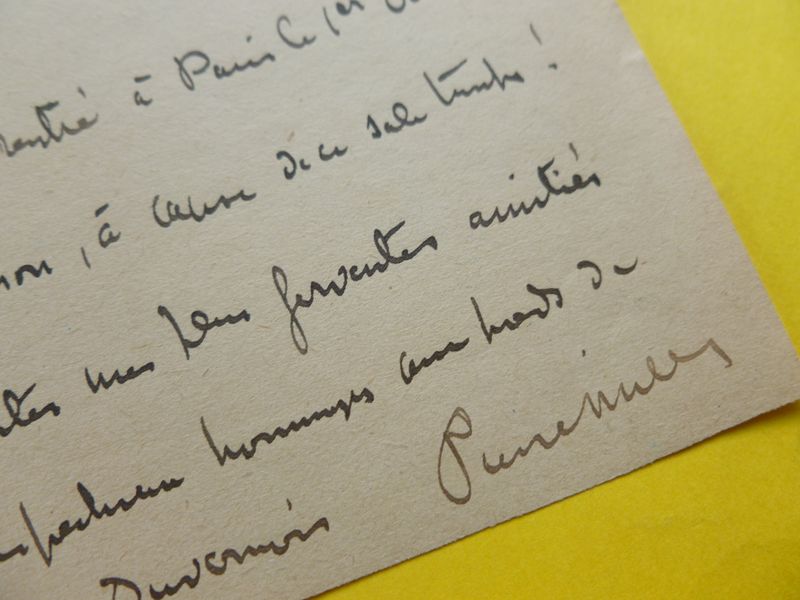 rentré à Paris le 1er
non, à cause de ce sale temps!
mes plus ferventes amitiés
respectueux hommages aux pieds de
Duvernois Pierre